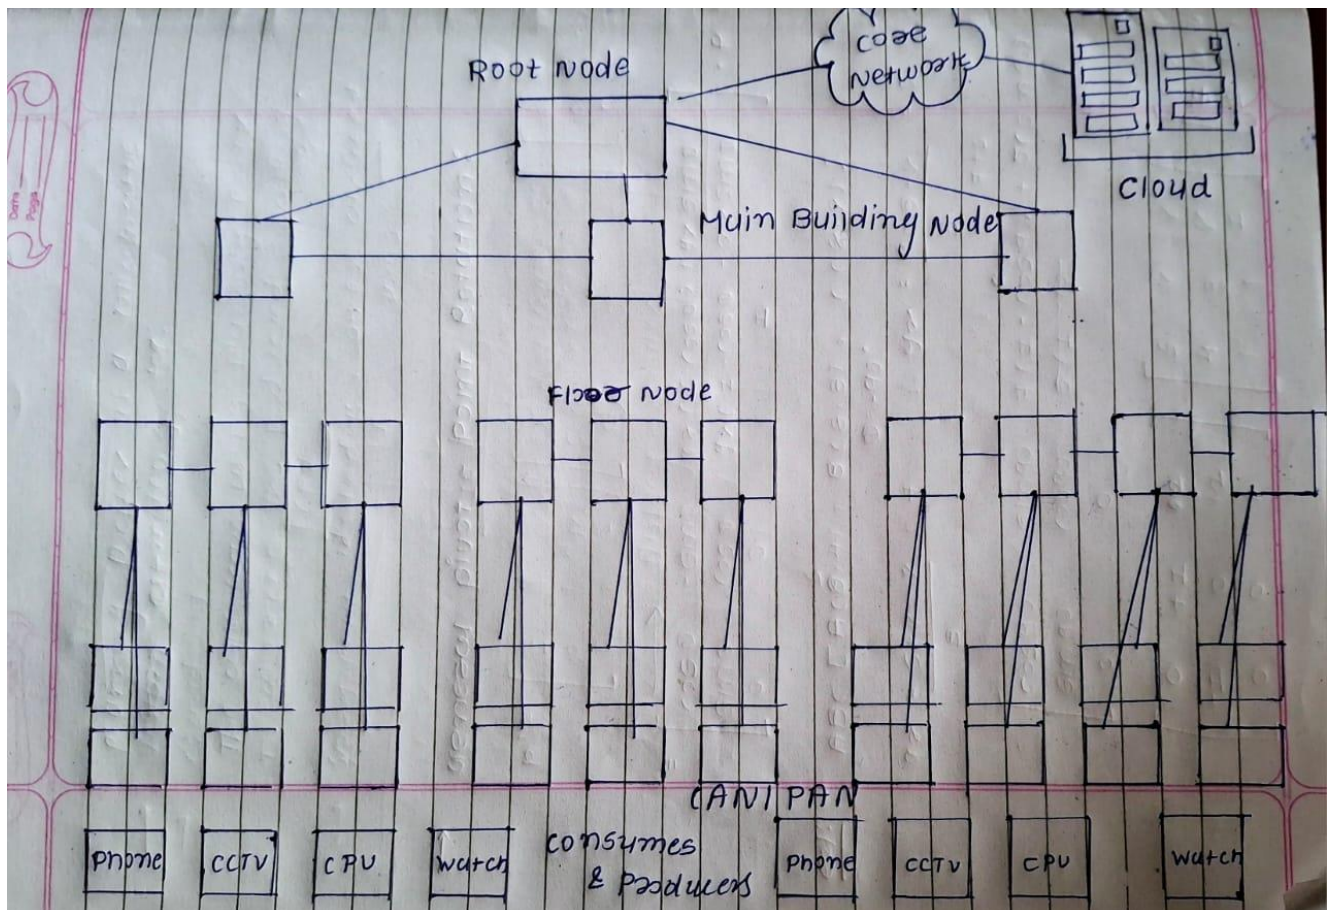 Root Node
Core
Network
Cloud
Main Building Node
Floor Node
CAN/PAN
Phone
CCTV
CPU
Watch
Consumes
& Producers
Phone
CCTV
CPU
Watch
Date
Page